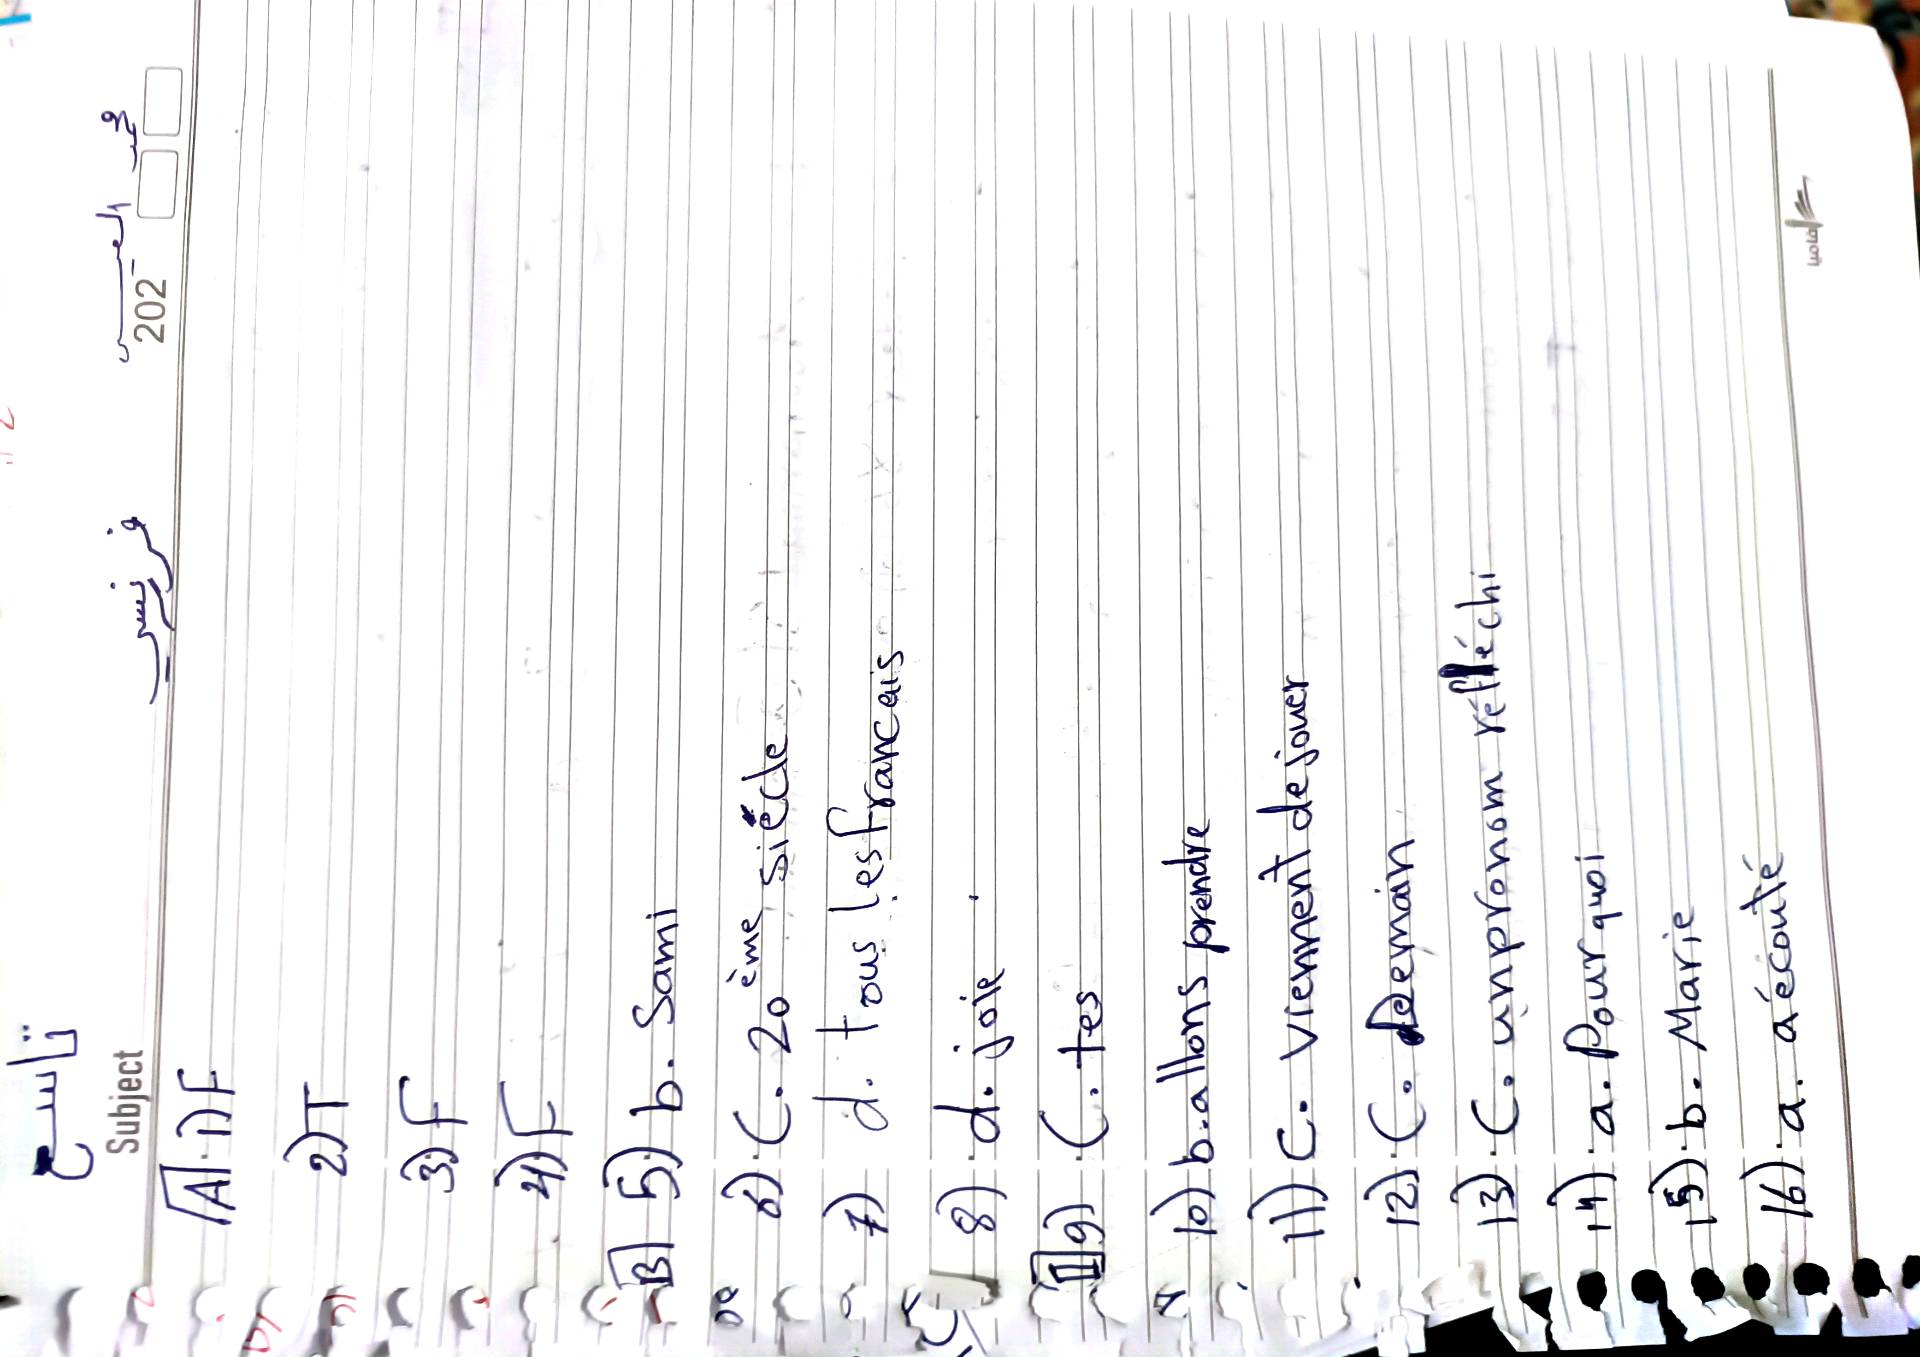 تاسع
Subject فرنسي 202
A 1) F
2) T
3) F
4) F
B 5) b. Sami
6) C. 20 ème siécle
7) d. tous les francais
8) d. joie
II 9) C. tes
10) b. allons prendre
11) C. viennent de jouer
12) C. Demain
13) C. un pronom réfléchi
14) a. Pourquoi
15) b. Marie
16) a. a écouté